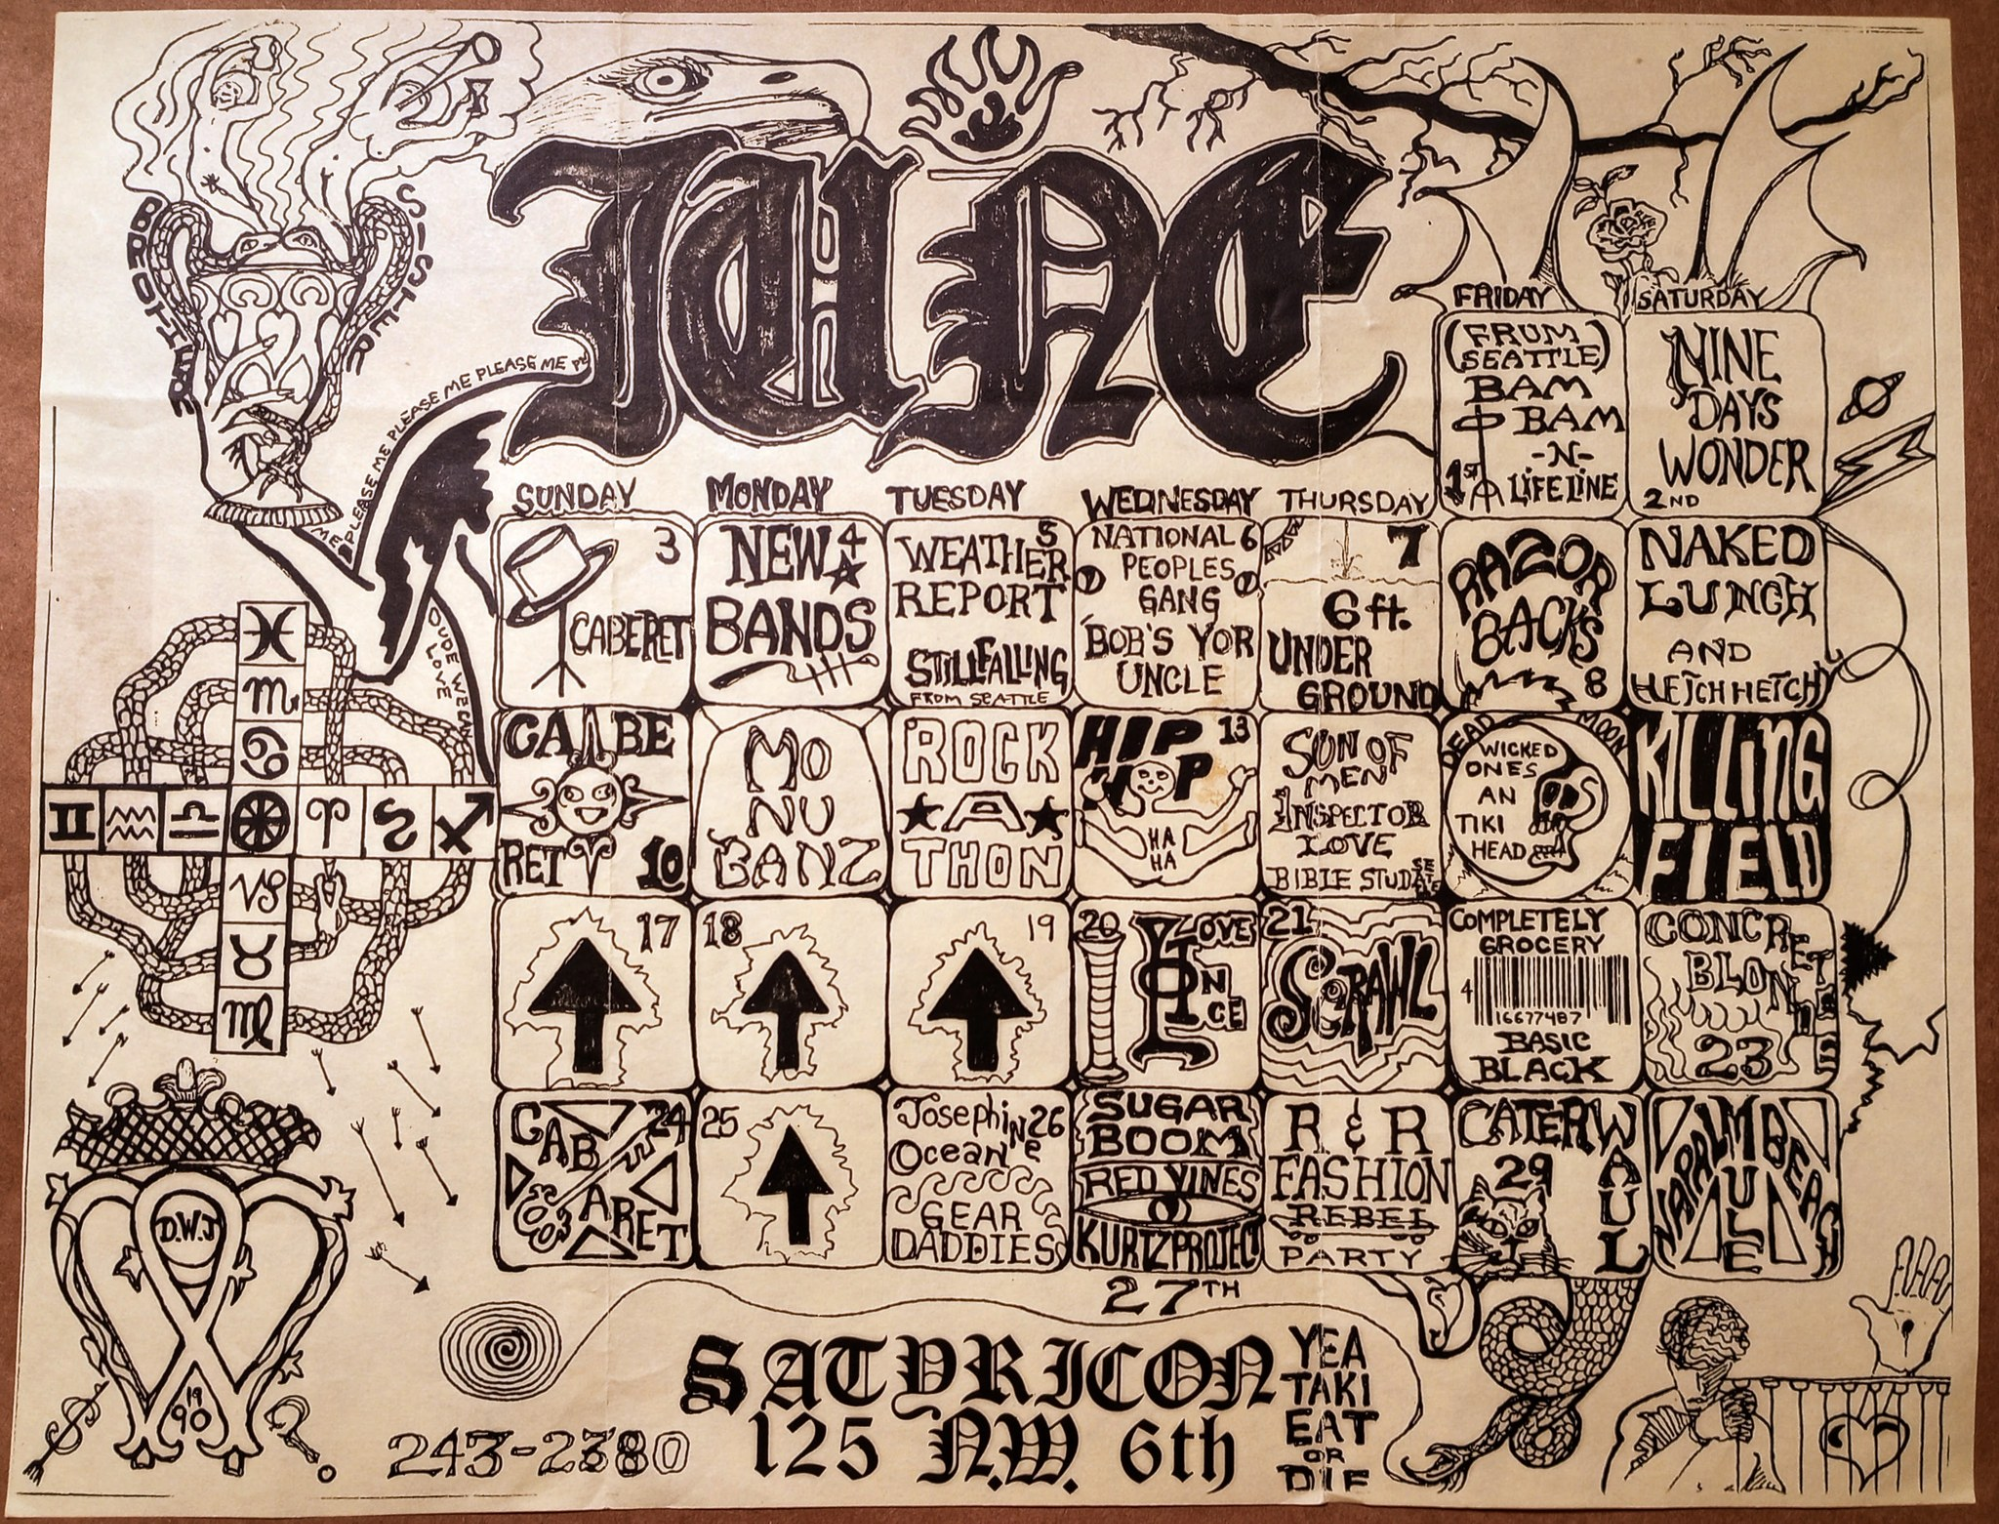 JUNE
BROTHERE
SISTER
ME PLEASE ME PLEASE ME PLEASE ME PLEASE ME PL
FRIDAY
SATURDAY
(FRUM
SEATTLE)
BAM
BAM
-N-
LIFELINE
1ST
NINE
DAYS
WONDER
2ND
SUNDAY
MONDAY
TUESDAY
WEDNESDAY
THURSDAY
3
CABERET
NEW 4
BANDS
5
WEATHER
REPORT
STILLFALLING
FROM SEATTLE
NATIONAL 6
PEOPLES
GANG
BOB'S YOR
UNCLE
7
6 ft.
UNDER
GROUND
RAZOR
BACKS
8
NAKED
LUNCH
AND
HETCH HETCHY
CA BE
RET
10
MO
NU
BANZ
ROCK
A
THON
HIP 13
HOP
HA
HA
SUN OF
MEN
INSPECTOR
LOVE
BIBLE STUD
DEAD MOON
WICKED
ONES
AN
TIKI
HEAD
KILLING
FIELD
17
18
19
20
LOVE
ON
ICE
21
SCRAWL
COMPLETELY
GROCERY
4
16677487
BASIC
BLACK
CONCRETE
BLONDE
23
CAB
ARET
24
25
Josephine 26
Ocean
GEAR
DADDIES
SUGAR
BOOM
RED VINES
KURTZ PROJECT
27TH
R & R
FASHION
REBEL
PARTY
CATERWAUL
29
NAPPALM BEACH
MULE
D.W.J
19
90
243-2380
SATYRICON
125 N.W. 6th
YEA
TAKI
EAT
OR
DIE